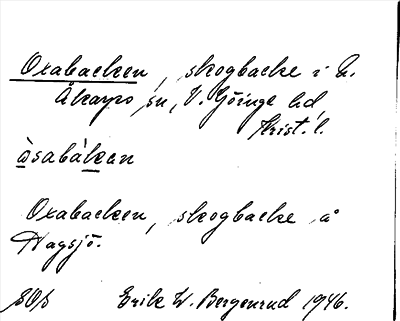 Oxabacken, skogbacke i N.
Åkarps sn, V. Göinge hd,
Krist. l.
òsabàken
Oxabacken, skogbacke å
Hagsjö.
SOA Erik W. Bergenrud 1946.